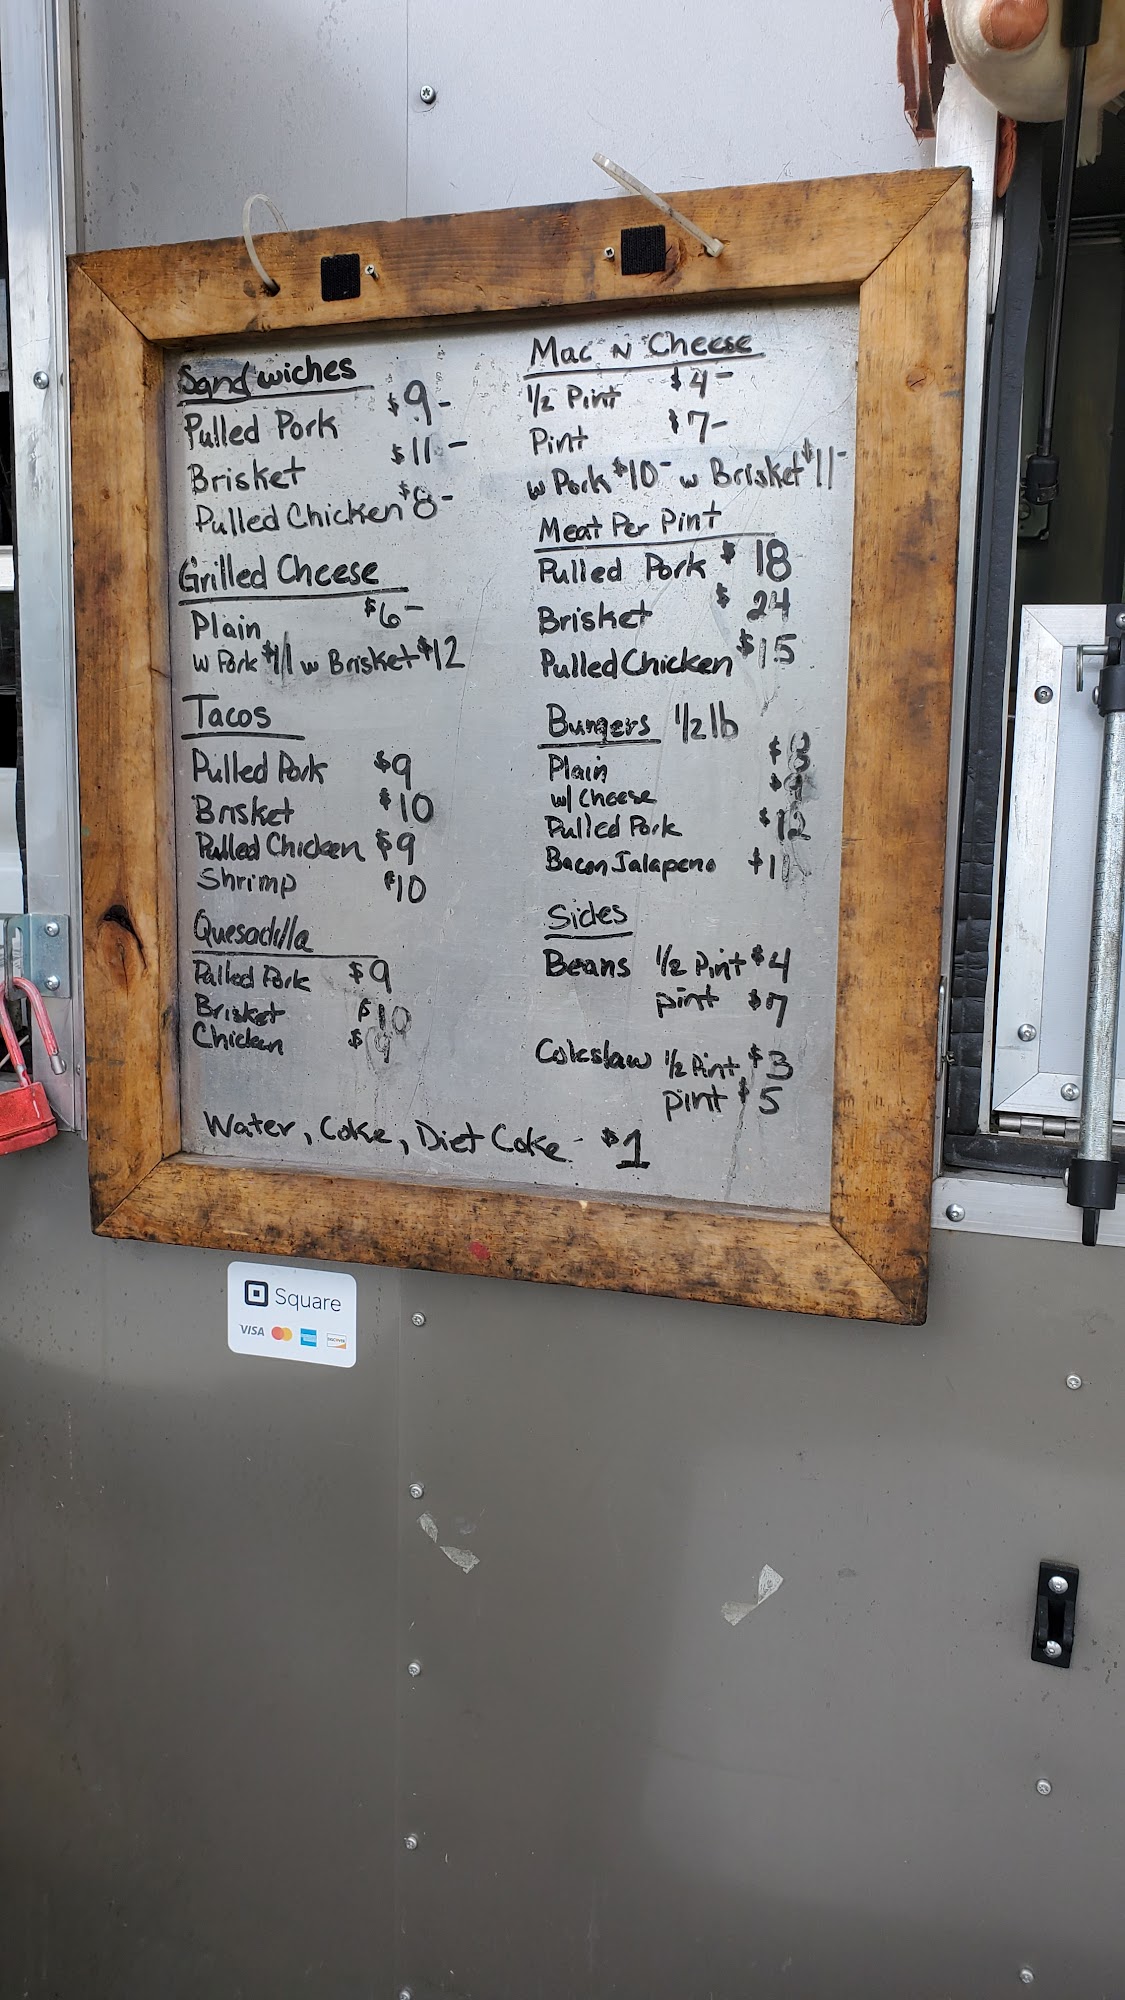 Sandwiches
Pulled Pork $9-
Brisket $11-
Pulled Chicken $8-
Grilled Cheese
Plain $6-
w Pork $11 w Brisket $12
Tacos
Pulled Pork $9
Brisket $10
Pulled Chicken $9
Shrimp $10
Quesadilla
Pulled Pork $9
Brisket $10
Chicken $9
Mac N Cheese
1/2 Pint $4-
Pint $7-
w Pork $10- w Brisket $11-
Meat Per Pint
Pulled Pork $18
Brisket $24
Pulled Chicken $15
Burgers 1/2 lb
Plain $8
w/ Cheese $9
Pulled Pork $12
Bacon Jalapeno
Sides
Beans 1/2 Pint $4
pint $7
Coleslaw 1/2 Pint $3
pint $5
Water, Coke, Diet Coke - $1
Square
VISA
DISCOVER